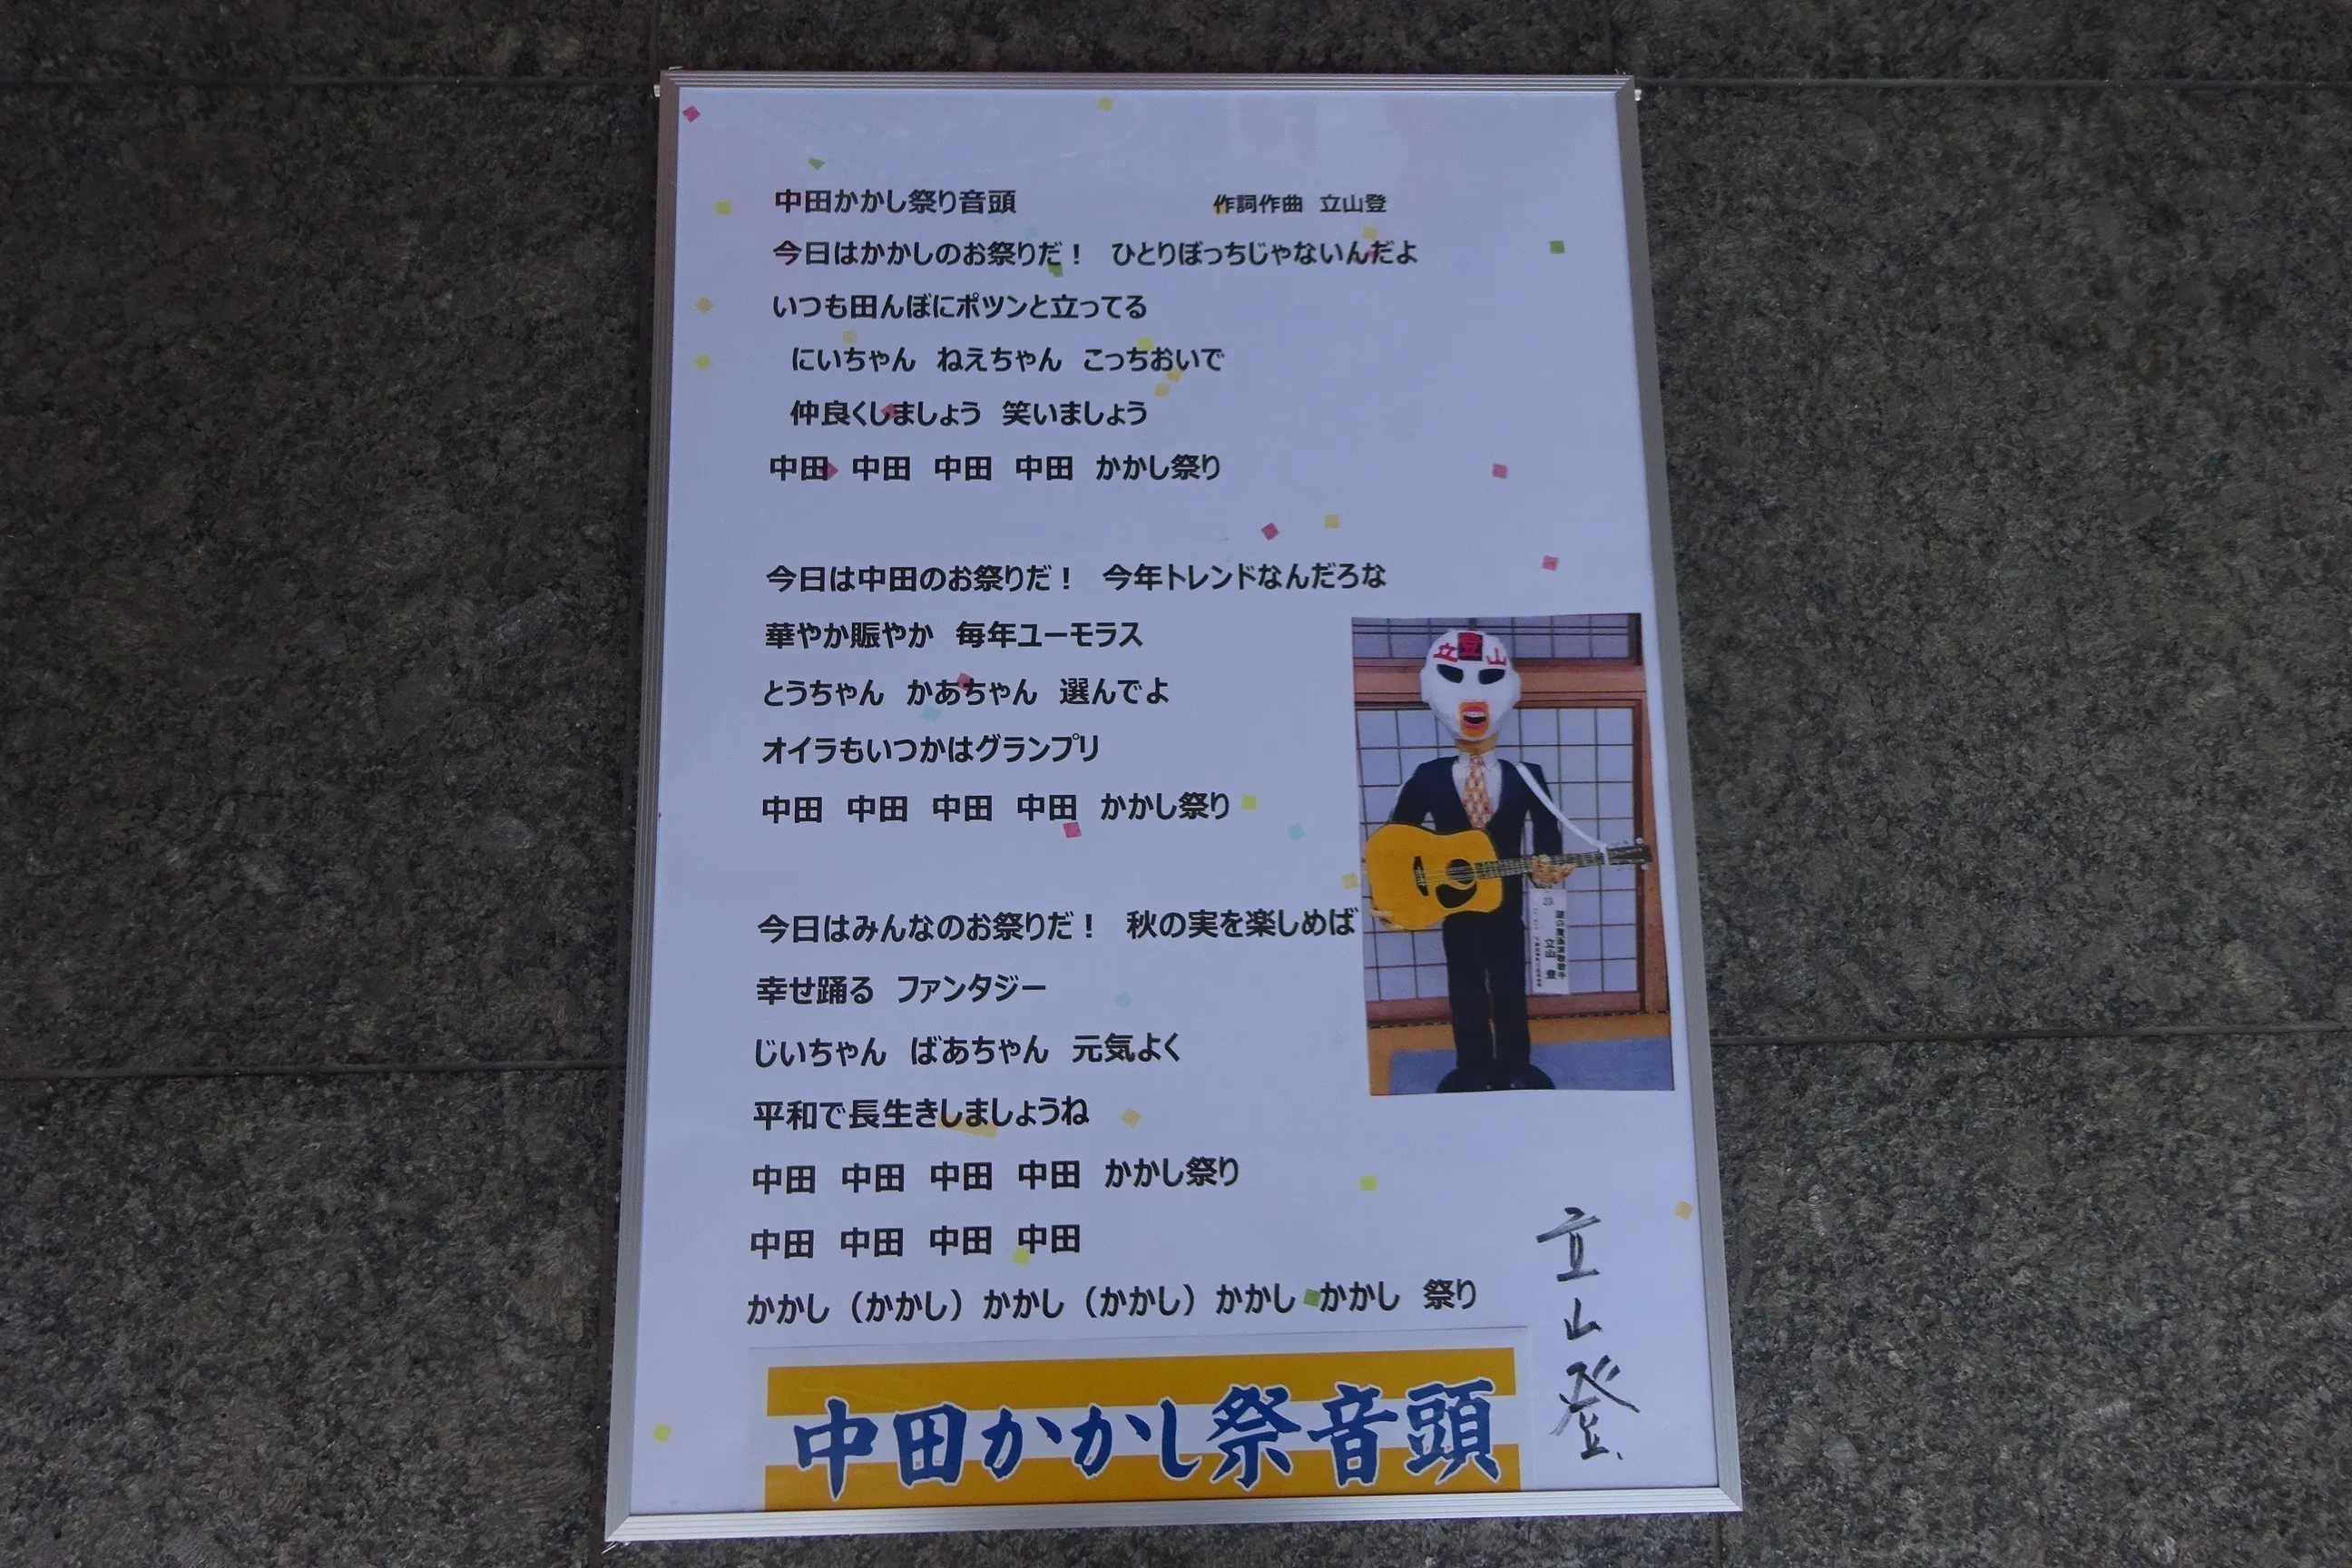 中田かかし祭り音頭　作詞作曲　立山登
今日はかかしのお祭りだ！　ひとりぼっちじゃないんだよ
いつも田んぼにポツンと立ってる
にいちゃん　ねえちゃん　こっちおいで
仲良くしましょう　笑いましょう
中田　中田　中田　中田　かかし祭り
今日は中田のお祭りだ！　今年トレンドなんだろな
華やか賑やか　毎年ユーモラス
とうちゃん　かあちゃん　選んでよ
オイラもいつかはグランプリ
中田　中田　中田　中田　かかし祭り
今日はみんなのお祭りだ！　秋の実を楽しめば
幸せ踊る　ファンタジー
じいちゃん　ばあちゃん　元気よく
平和で長生きしましょうね
中田　中田　中田　中田　かかし祭り
中田　中田　中田　中田
かかし（かかし）かかし（かかし）かかし　かかし　祭り
立登山
立山　登
立山登
中田かかし祭音頭